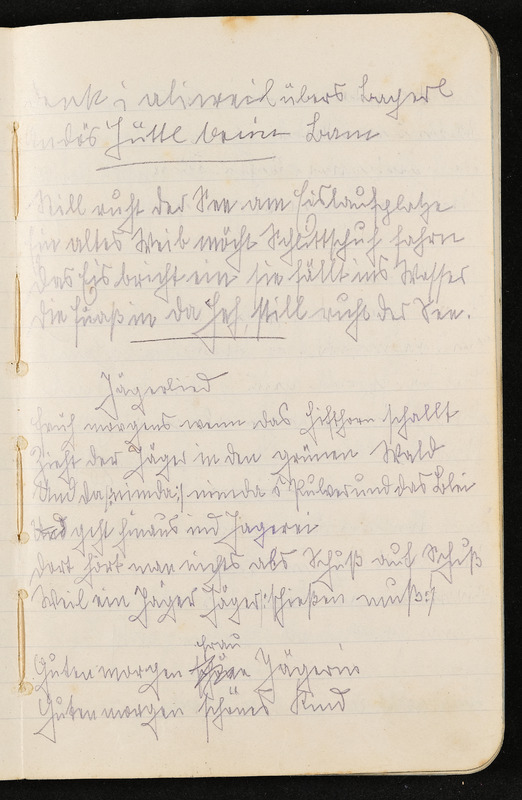 denk i aliweil übers Bacherl
andös Hüttl beim Bam
Still ruht der See am Eislaufplatze
Ein altes Weib möcht Schlittschuh fahrn
Das Eis brecht ein sie fällt ins Wasser
Die Fuaß in da Heh, still ruht der See.
Jägerlied
Früh morgens wenn das Hifthorn schallt
Zieht der Jäger in den grünen Wald
Und da /:nimda:/ nimda s Pulver und das Blei
geht hinaus ind Jagerei
Dort hört man nichts als Schuß auf Schuß
Weil ein Jäger Jäger /:schießen muß:/
Guten morgen Frau Jägerin
Guten morgen schönes Kind